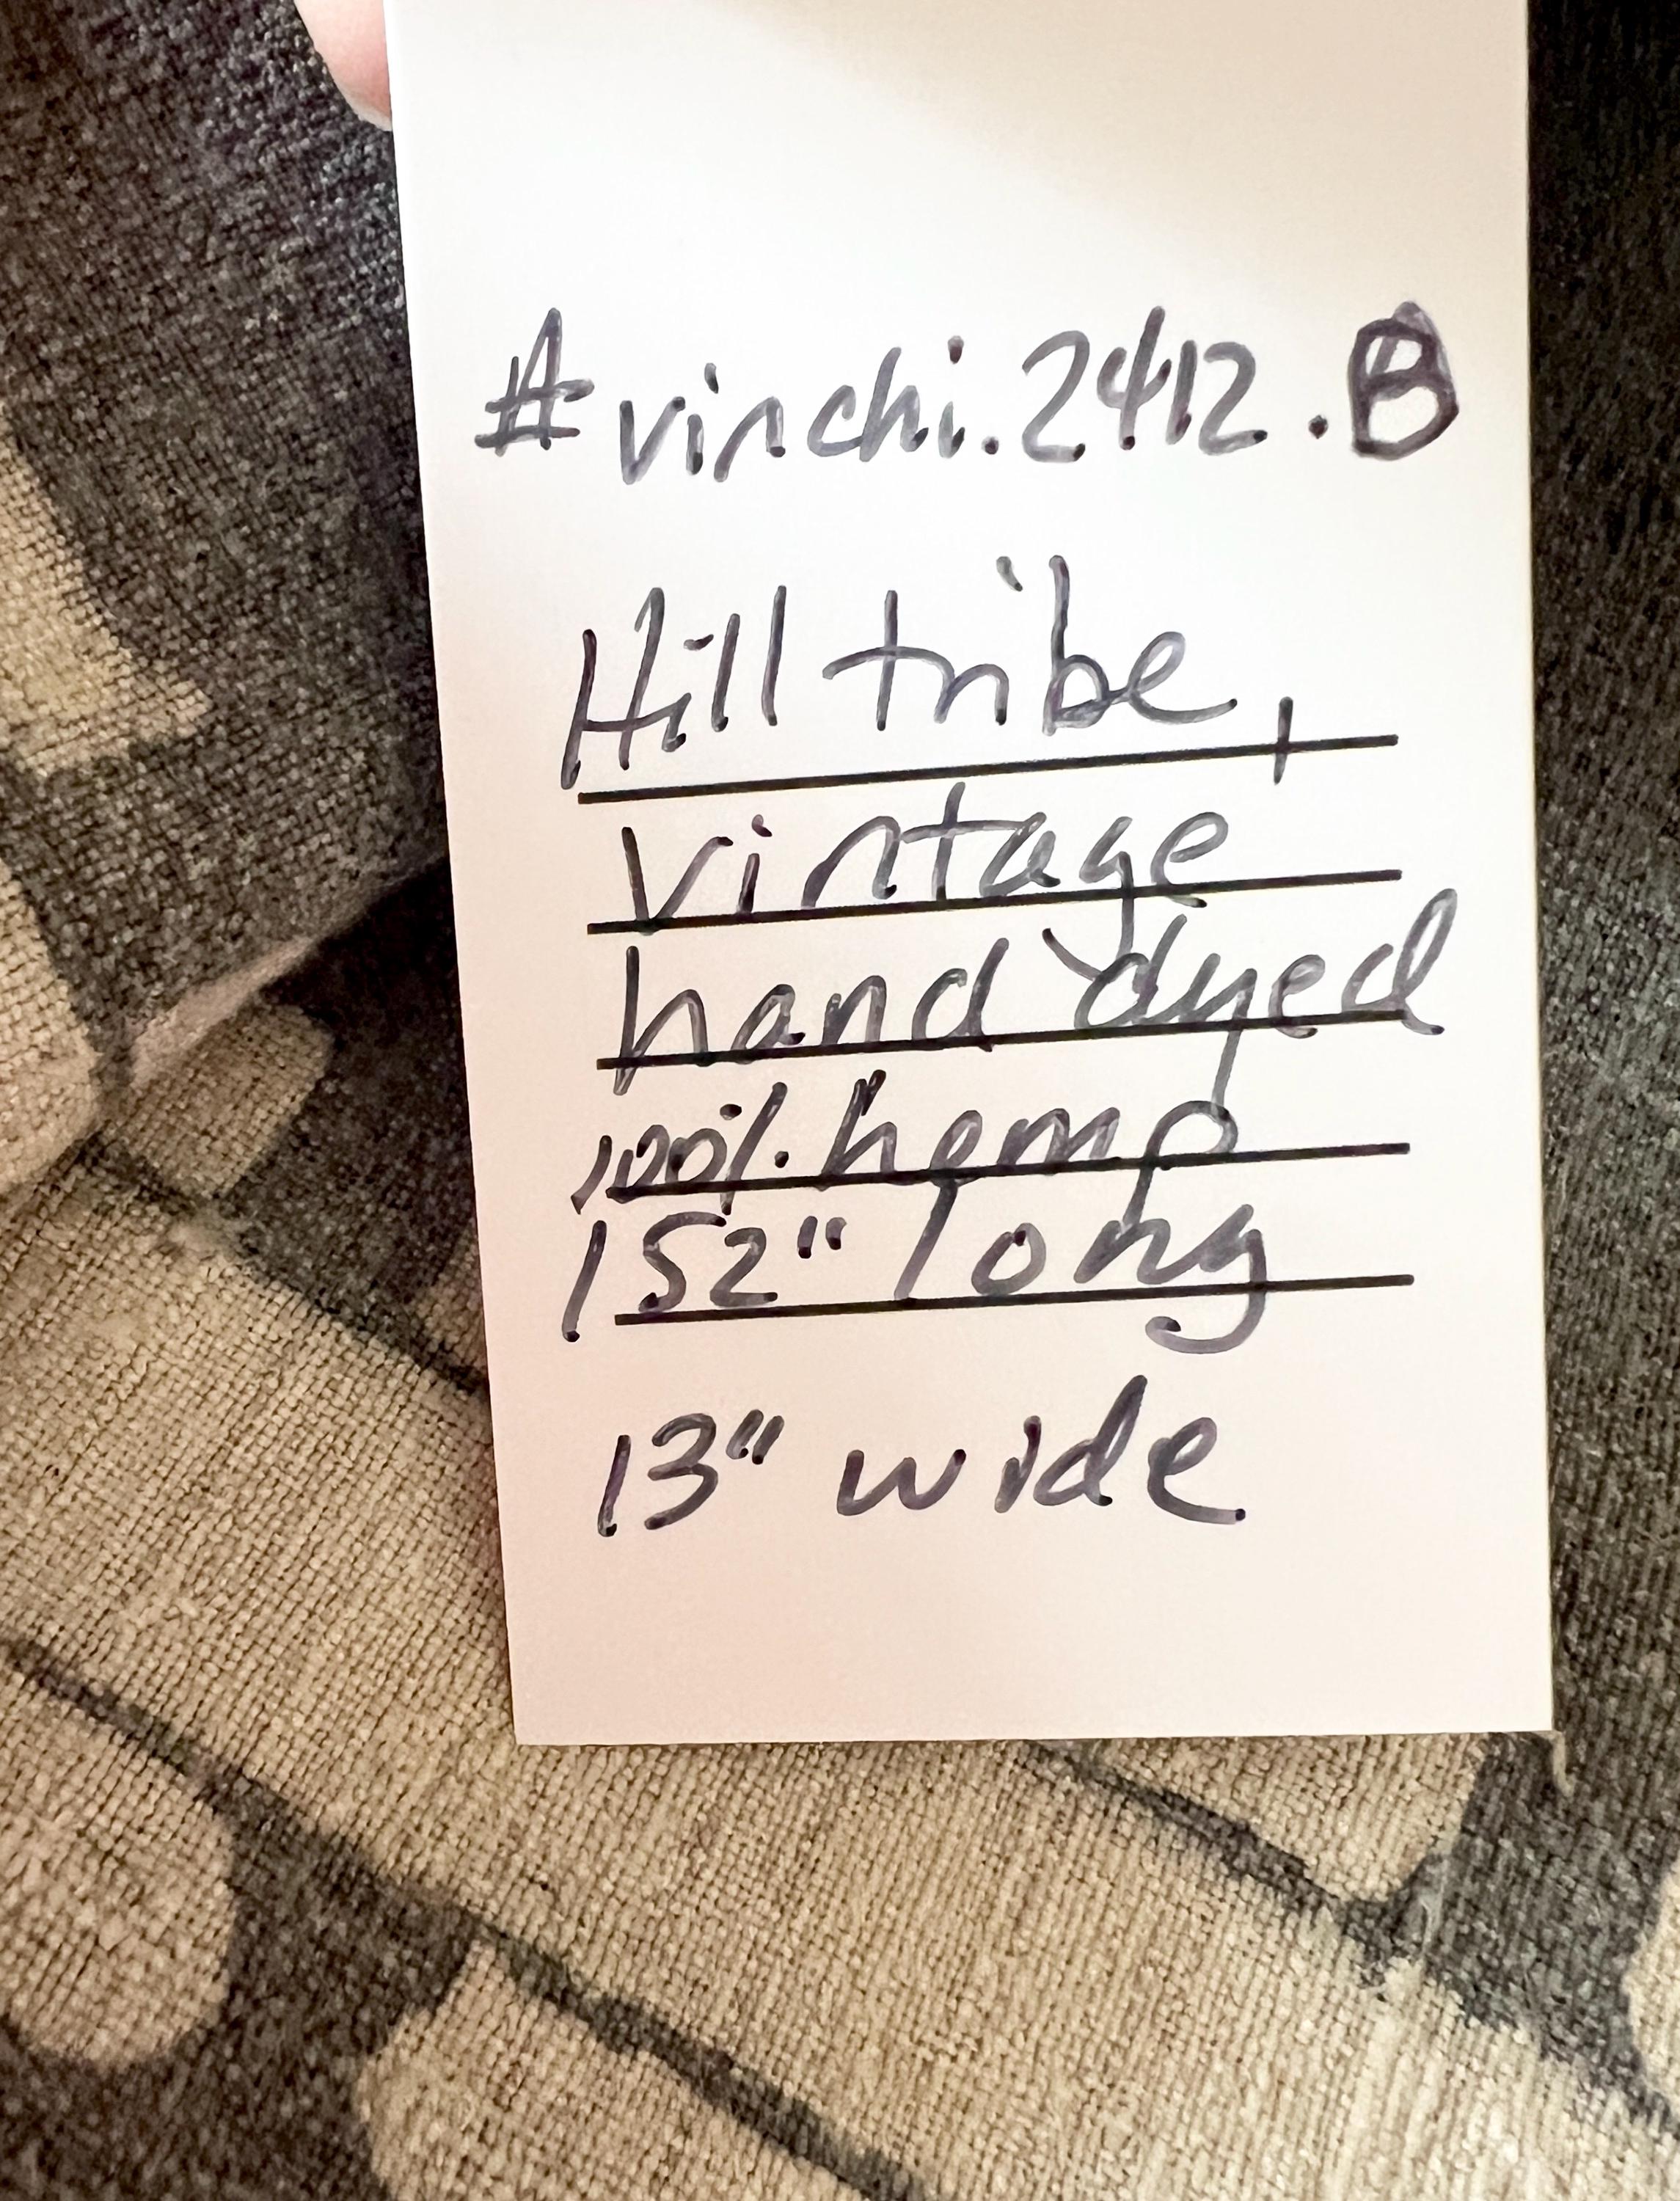 #vinchi.2412.B
Hill tribe,
vintage
hand dyed
100% hemp
152" long
13" wide